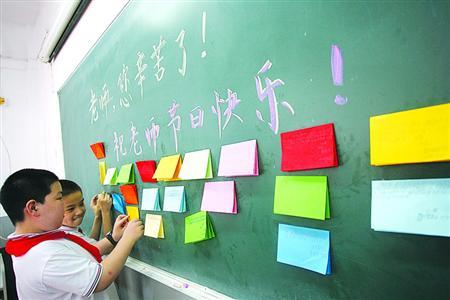 老师,您辛苦了!
祝老师节日快乐!